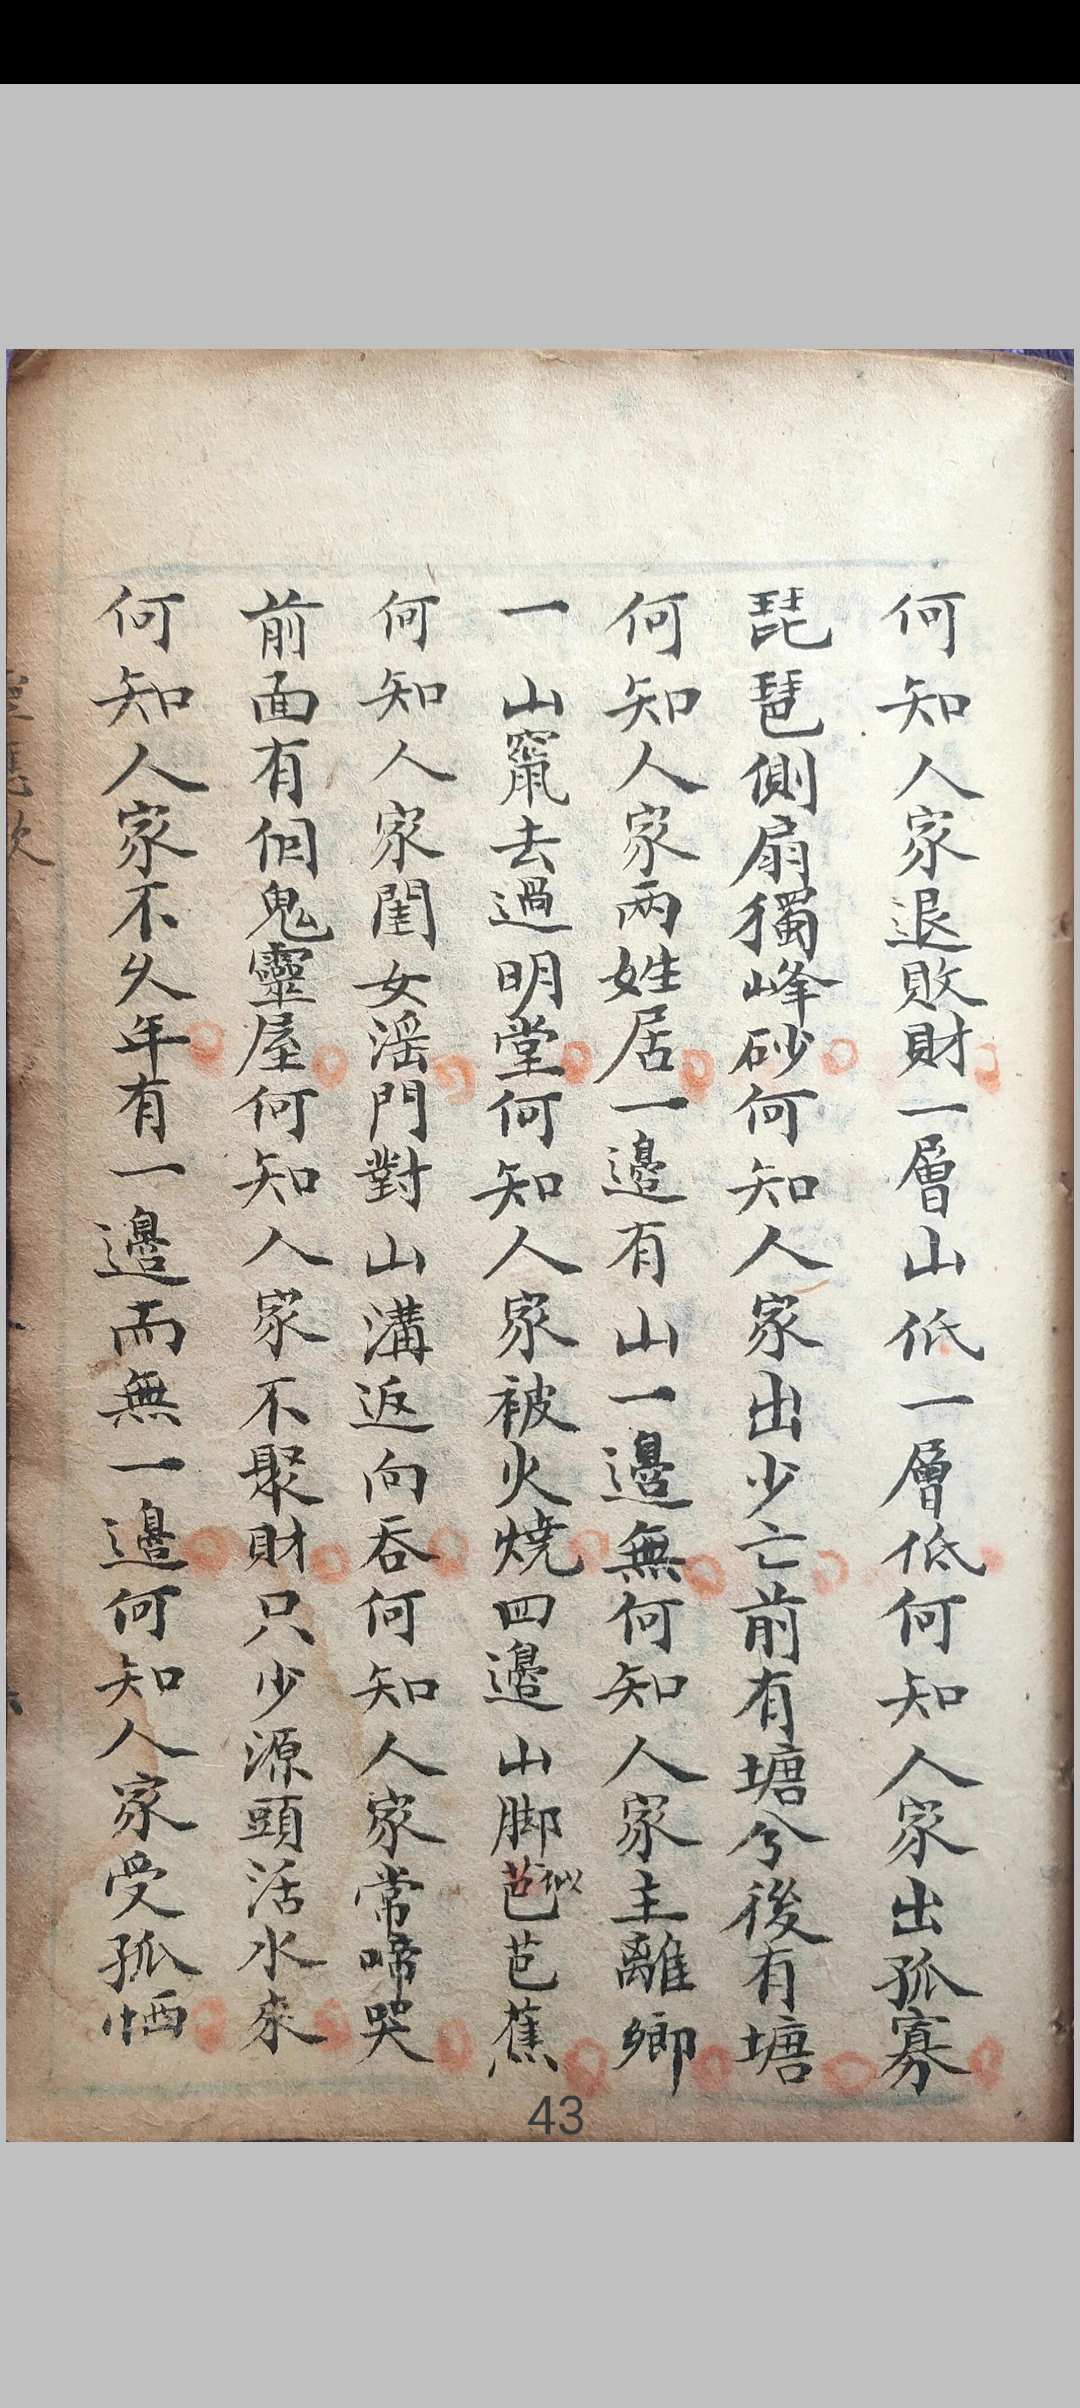 何知人家退敗財一層山低一層低何知人家出孤寡
琵琶側扇獨峰砂何知人家出少亡前有塘兮後有塘
何知人家两姓居一邊有山一邊無何知人家主離鄉
一山竄去過明堂何知人家被火燒四邊山脚芭似芭蕉
何知人家閨女滛門對山溝返向吞何知人家常啼哭
前面有個鬼靈屋何知人家不聚財只少源頭活水來
何知人家不久年有一邊而無一邊何知人家受孤恓
43